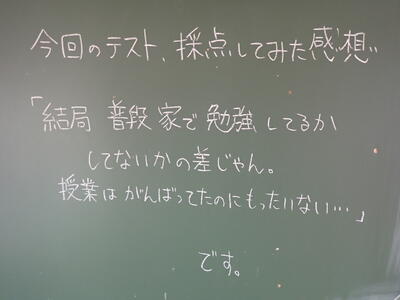 今回のテスト、採点してみた感想
「結局 普段 家で勉強してるか
してないかの差じゃん。
授業はがんばってたのにもったいない…」
です。